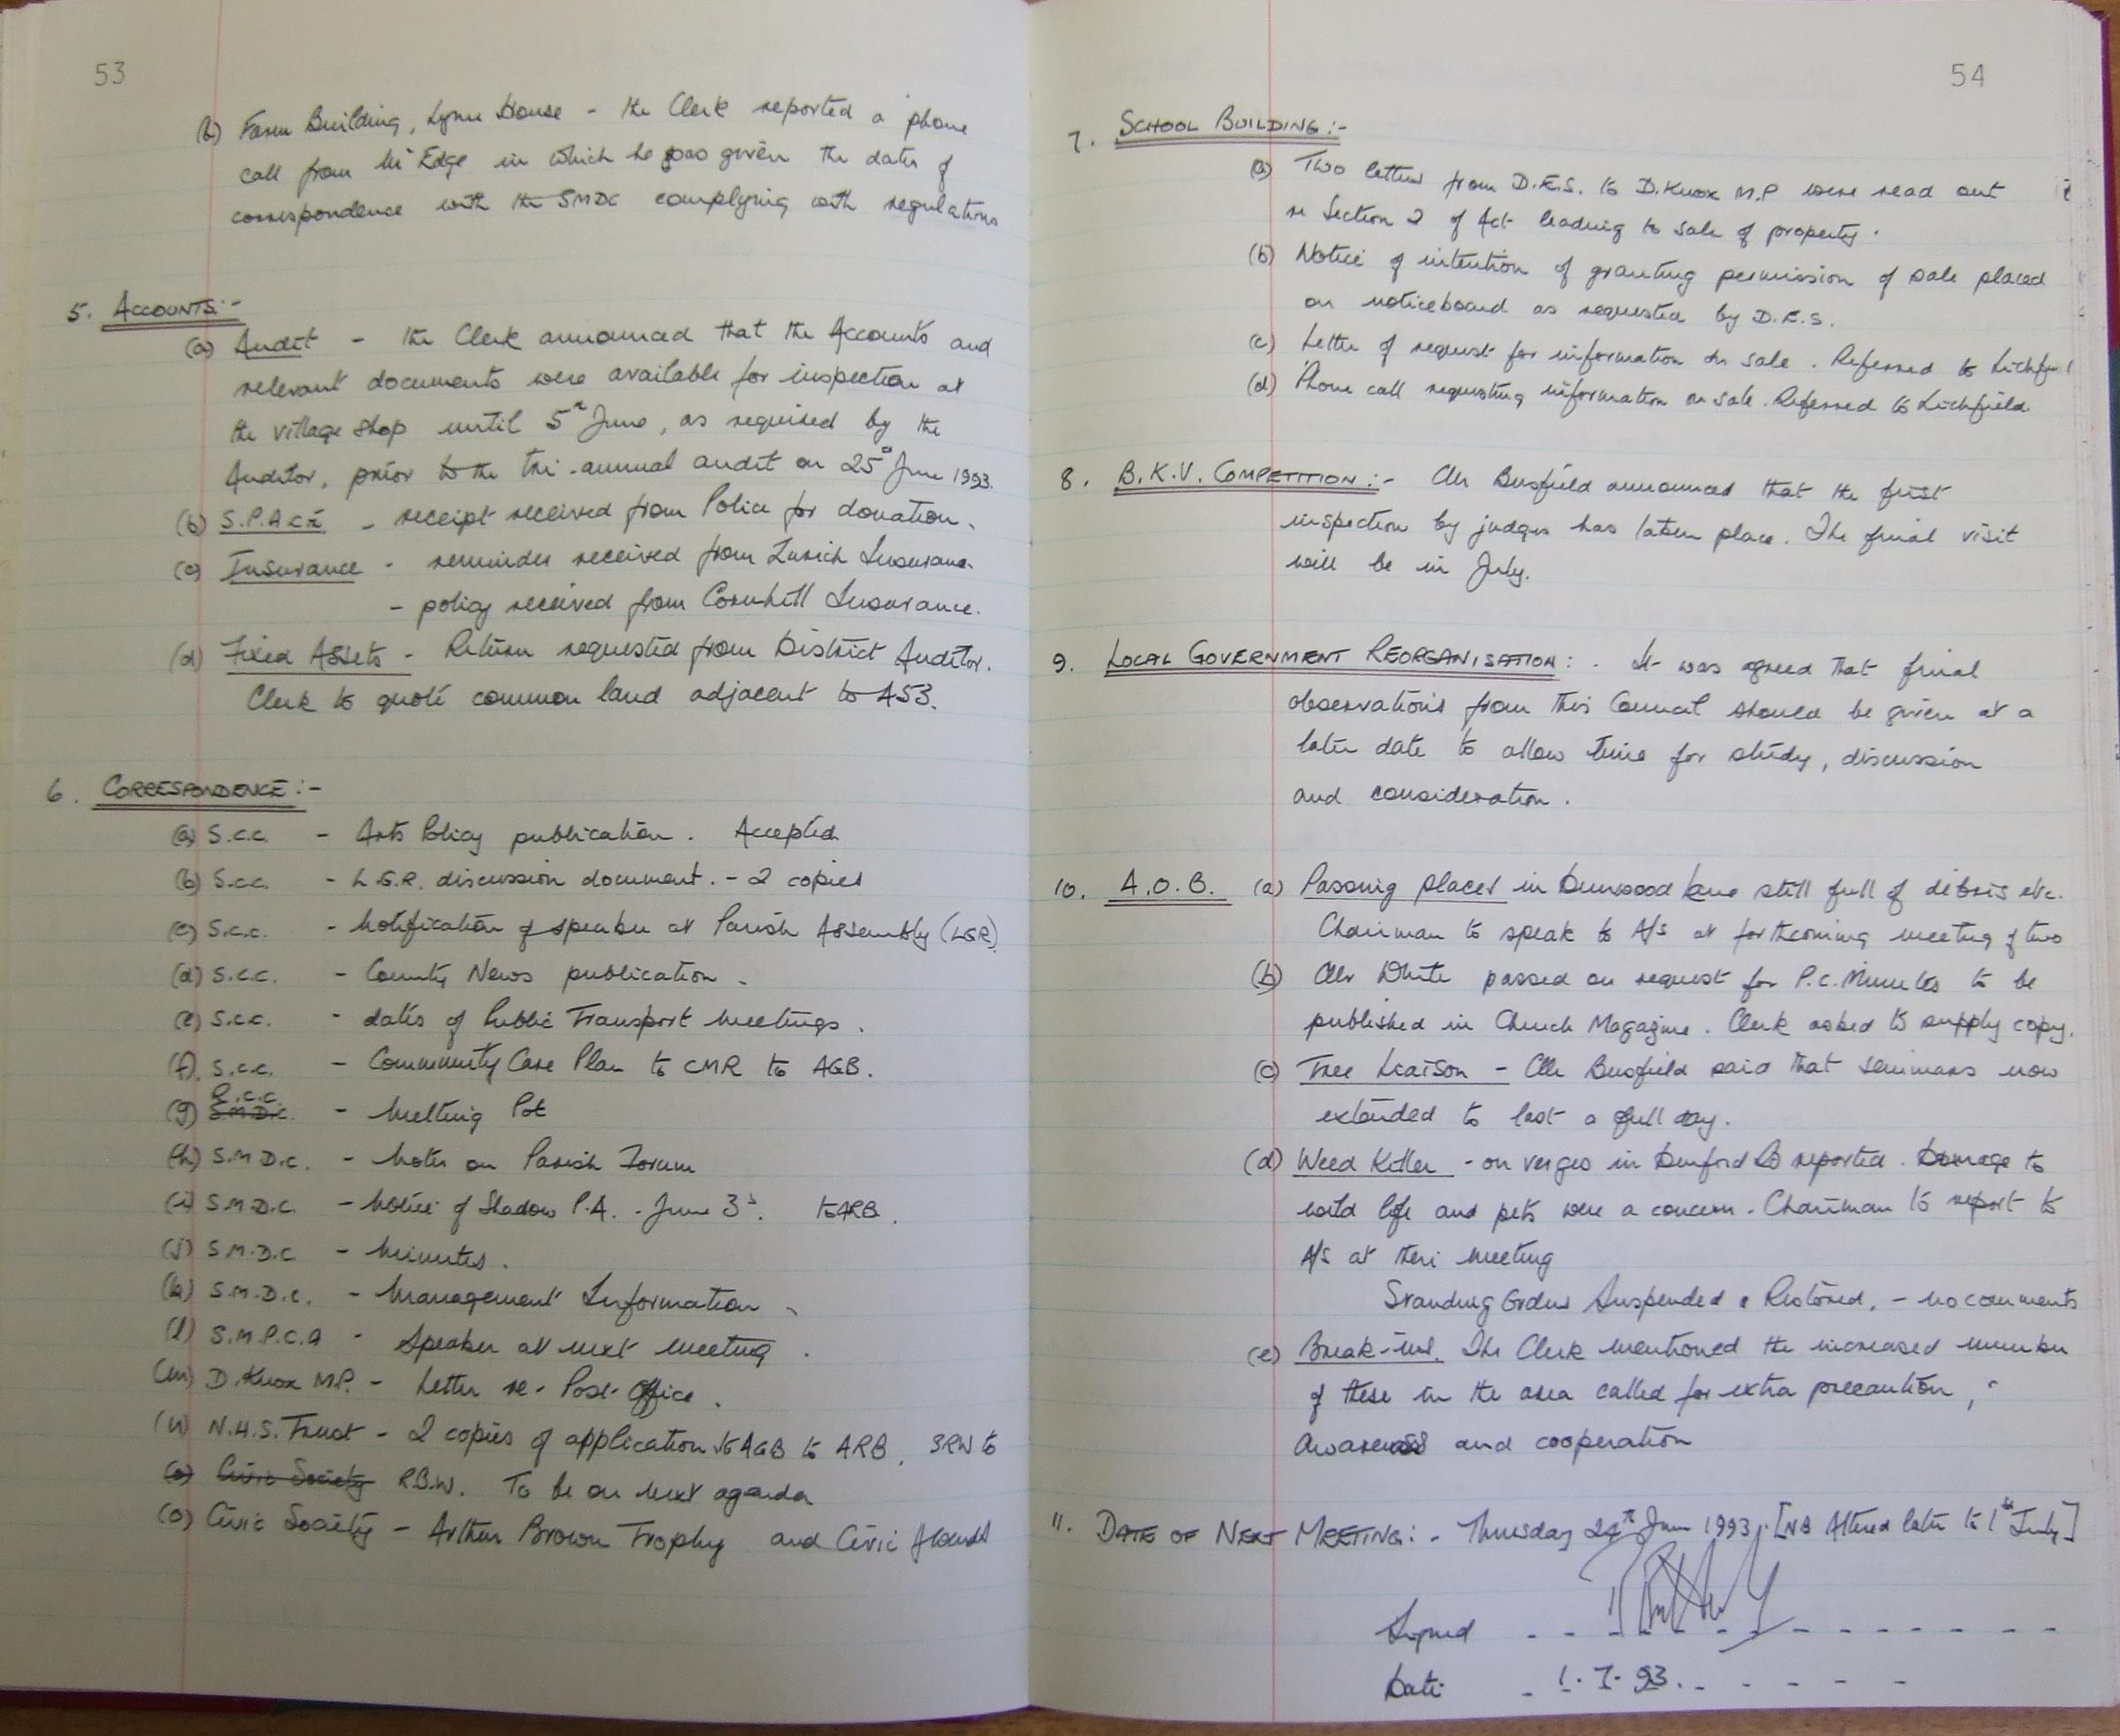 53
(h) Farm Building, Lynn House - the Clerk reported a phone
call from Mr Edge in which he was given the dates of
correspondence with the SMDC complying with regulations
5. ACCOUNTS:-
(a) Audit - the Clerk announced that the Accounts and
relevant documents were available for inspection at
the village shop until 5th June, as required by the
Auditor, prior to the tri-annual audit on 25th June 1993.
(b) S.P.A.C.E - receipt received from Police for donation.
(c) Insurance - reminder received from Zurich Insurance.
- policy received from Cornhill Insurance.
(d) Fixed Assets - Return requested from District Auditor.
Clerk to quote common land adjacent to A53.
6. CORRESPONDENCE:-
(a) S.C.C. - Arts Policy publication. Accepted
(b) S.C.C. - L.G.R. discussion document. - 2 copies
(c) S.C.C. - Notification of speaker at Parish Assembly (LGR)
(d) S.C.C. - County News publication.
(e) S.C.C. - dates of Public Transport Meetings.
(f) S.C.C. - Community Care Plan to CMR to AGB.
(g) S.M.D.C. R.C.C. - Melting Pot
(h) S.M.D.C. - Notes on Parish Forum
(i) S.M.D.C. - Notice of Shadow P.A. - June 3rd. to ARB.
(j) S.M.D.C. - Minutes.
(k) S.M.D.C. - Management Information.
(l) S.M.P.C.A - Speaker at next meeting.
(m) D. Knox M.P. - Letter re- Post Office.
(n) N.H.S. Trust - 2 copies of application to AGB to ARB, SRW to
(o) Civic Society R.B.W. To be on next agenda
(o) Civic Society - Arthur Brown Trophy and Civic Awards
54
7. SCHOOL BUILDING:-
(a) Two letters from D.E.S. to D. Knox M.P were read out
re Section 2 of Act leading to sale of property.
(b) Notice of intention of granting permission of sale placed
on noticeboard as requested by D.E.S.
(c) Letter of request for information on sale. Referred to Lichfield
(d) Phone call requesting information on sale. Referred to Lichfield.
8. B.K.V. COMPETITION:- Cllr Busfield announced that the first
inspection by judges has taken place. The final visit
will be in July.
9. LOCAL GOVERNMENT REORGANISATION:- It was agreed that final
observations from this Council should be given at a
later date to allow time for study, discussion
and consideration.
10. A.O.B. (a) Passing places in Dunwood Lane still full of debris etc.
Chairman to speak to A/S at forthcoming meeting of two
(b) Cllr White passed on request for P.C. Minutes to be
published in Church Magazine. Clerk asked to supply copy.
(c) Tree Liaison - Cllr Busfield said that seminars now
extended to last a full day.
(d) Weed Killer - on verges in Denford Rd reported. Damage to
wild life and pets were a concern. Chairman to report to
A/S at their meeting
Standing Orders Suspended & Restored. - no comments
(e) Break-ins. The Clerk mentioned the increased number
of these in the area called for extra precaution,
awareness and cooperation
11. DATE OF NEXT MEETING:- Thursday 24th June 1993. [NB Altered later to 1st July]
Signed
Date 1.7.93.